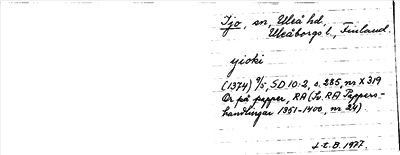 Ijo, sn, Uleå hd,
Uleåborgs l., Finland.
yioki
(1374) 9/5, SD 10:2, s. 285, nr X 319
Or på papper, RA (Sv. RA Pappers-
handlingar 1351-1400, nr 24).
1977.